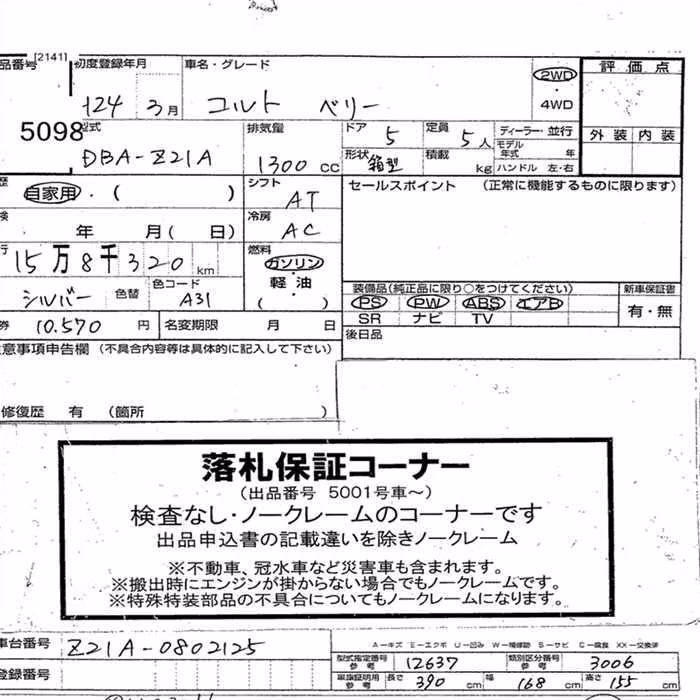 品番号 [2141] 初度登録年月 車名・グレード 2WD 評価点
124 3月 コルト ベリー 4WD
外装 内装
5098
型式 排気量 ドア 定員 ディーラー・並行
DBA-Z21A 1300 cc 5 5人 モデル年式 年
形状 箱型 積載 kg ハンドル 左・右
歴 自家用・( ) シフト AT セールスポイント (正常に機能するものに限ります)
検 年 月( 日) 冷房 AC
行 15万8千320 km 燃料 ガソリン・軽油 ( )
シルバー 色替 色コード A31
装備品(純正品に限り○をつけてください) 新車保証書
PS PW ABS エアB 有・無
SR ナビ TV
券 10.570 円 名変期限 月 日 後日品
意事項申告欄 (不具合内容等は具体的に記入して下さい)
修復歴 有 (箇所 )
落札保証コーナー
(出品番号 5001号車~)
検査なし・ノークレームのコーナーです
出品申込書の記載違いを除きノークレーム
※不動車、冠水車など災害車も含まれます。
※搬出時にエンジンが掛からない場合でもノークレームです。
※特殊特装部品の不具合についてもノークレームになります。
車台番号 Z21A-0802125
A-キズ E-エクボ U-凹み W-補修跡 S-サビ C-腐食 XX-交換済
型式指定番号 参考 12637 類別区分番号 参考 3006
登録番号 車庫証明用 参考 長さ 390 cm 幅 168 cm 高さ 155 cm